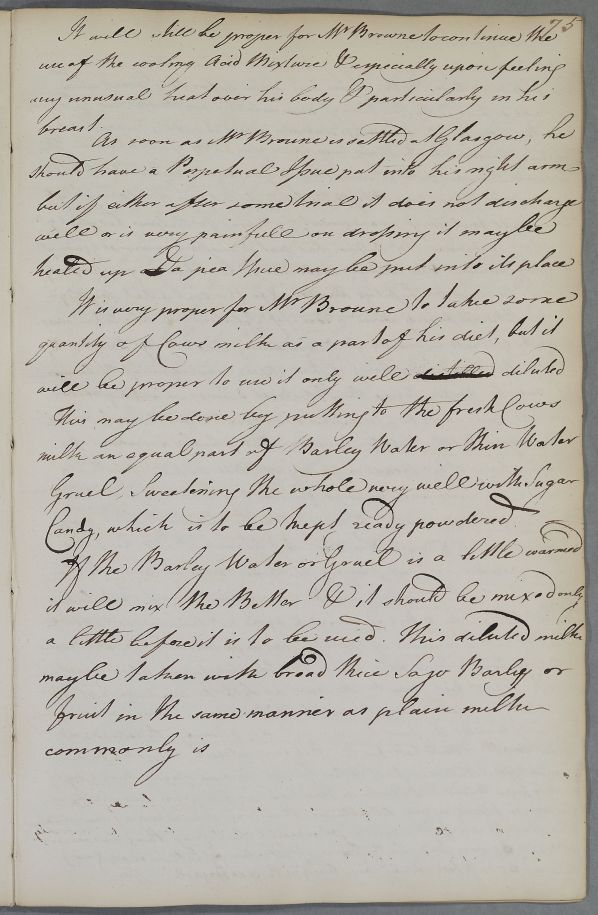 75
It will still be proper for Mr Browne to continue the
use of the cooling Acid Mixture & especially upon feeling
any unusual heat over his body & particularly in his
breast.
As soon as Mr Broune is settled at Glasgow, he
should have a Perpetual Issue put into his right arm
but if either after some trial it does not discharge
well or is very painfull on dressing it may be
healed up & a pea Issue may be put into its place
It is very proper for Mr Broune to take some
quantity of Cows milk as a part of his diet, but it
will be proper to use it only well distilled diluted
This may be done by putting to the fresh Cows
milk an equal part of Barley Water or thin Water
Gruel Sweetening the whole very well with Sugar
Candy, which is to be kept ready powdered.
If the Barley Water or Gruel is a little warmed
it will mix the Better & it should be mixed only
a little before it is to be used. This diluted milk
may be taken with bread Rice Sago Barley or
fruit in the same manner as plain milk
commonly is